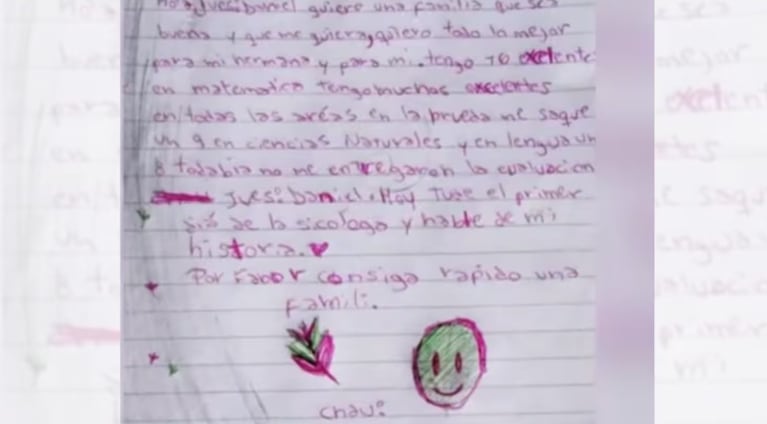 quiero una familia que sea
buena y que me quiera, quiero todo lo mejor
para mi hermana y para mi. tengo 10 exelente
en matematica tengo muchos exelentes
en todas las areas en la prueba me saque
un 9 en ciencias Naturales y en lengua un
8 todabia no me entregaron la evaluacion
Jues: Daniel. Hoy Tube el primer
dia de la sicologa y hable de mi
historia.
Por Fabor consiga rapido una
famili.
chau: